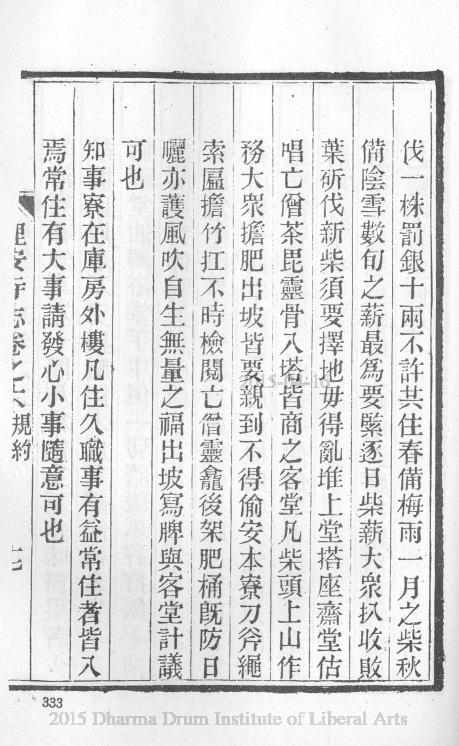 伐一株罰銀十兩不許共住春備梅雨一月之柴秋
備陰雪數旬之薪最為要緊逐日柴薪大衆扒收敗
葉斫伐新柴須要擇地毋得亂堆上堂搭座齋堂估
唱亡僧茶毘靈骨入塔皆商之客堂凡柴頭上山作
務大衆擔肥出坡皆要親到不得偷安本寮刀斧繩
索匾擔竹扛不時檢閱亡僧靈龕後架肥桶旣防日
曬亦護風吹自生無量之福出坡寫牌與客堂計議
可也
知事寮在庫房外樓凡住久職事有益常住者皆入
焉常住有大事請發心小事隨意可也
理安寺志卷之六 規約 十七
333
2015 Dharma Drum Institute of Liberal Arts